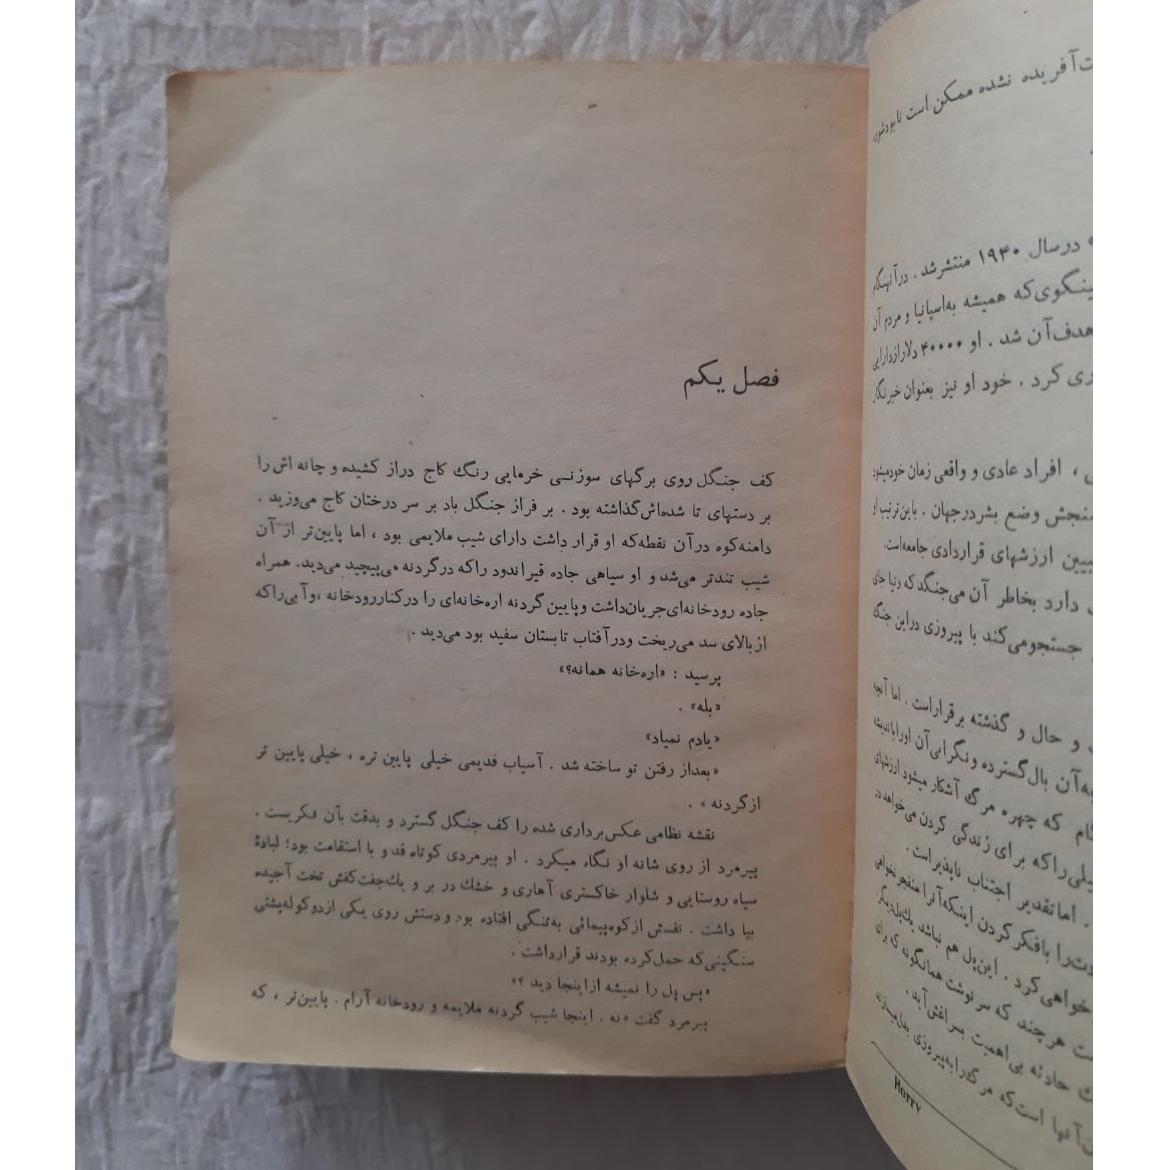 ت آفریده نشده ممکن است نابودشود
درسال ۱۹۴۰ منتشرشد . درآنهنگام
ینگوی‌که همیشه به‌اسپانیا و مردم آن
هدف‌آن شد . او ۴۰۰۰۰ دلارازدارایی
ری کرد . خود او نیز بعنوان خبرنگار
، افراد عادی و واقعی زمان خودمیشود
سنجش وضع بشردرجهان . باین‌ترتیب او
بیین ارزشهای قراردادی جامعه‌است.
دارد بخاطر آن می‌جنگد که دنیا جای
جستجومی‌کند با پیروزی دراین جنگ
و حال و گذشته برقراراست . اما آنچه
به‌آن بال‌گسترده ونگرانی‌آن اوراباندیشه
که چهره مرگ آشکار میشود ارزشهای
یلی‌راکه برای زندگی کردن می‌خواهد در
. اماتقدیر اجتناب ناپذیراست .
وت‌را بافکرکردن اینکه‌آنرا منفجرنخواهی
خواهی‌کرد . این‌پل هم نباشد یك‌پل‌دیگر.
ت هرچند که سرنوشت همانگونه که برای
ك حادثه بی‌اهمیت بسراغش‌آید .
ن‌آنها است‌که مرگ‌رابه‌پیروزی بدل‌میسازند
Horry
فصل یکم
کف جنگل روی برگهای سوزنی خرمایی رنگ کاج دراز کشیده و چانه اش را
بر دستهای تا شده‌اش‌گذاشته بود . بر فراز جنگل باد بر سر درختان کاج می‌وزید .
دامنه‌کوه درآن نقطه‌که او قرار داشت دارای شیب ملایمی بود ، اما پایین‌تر از آن
شیب تندتر می‌شد و او سیاهی جاده قیراندود راکه درگردنه می‌پیچید می‌دید. همراه
جاده رودخانه‌ای‌جریان‌داشت وپایین گردنه اره‌خانه‌ای را درکناررودخانه ،وآبی‌راکه
ازبالای سد می‌ریخت ودرآفتاب تابستان سفید بود می‌دید .
پرسید : «اره‌خانه همانه؟»
«بله» .
«یادم نمیاد»
«بعداز رفتن تو ساخته شد . آسیاب قدیمی خیلی پایین تره ، خیلی پایین تر
ازگردنه» .
نقشه نظامی عکس‌برداری شده را کف جنگل گسترد و بدقت بآن نگریست .
پیرمرد از روی شانه او نگاه میکرد . او پیرمردی کوتاه قد و با استقامت بود؛ لبادهٔ
سیاه روستایی و شلوار خاکستری آهاری و خشك در بر و یك‌جفت‌کفش تخت آجیده
بپا داشت . نفسش ازکوه‌پیمائی به‌تنگی افتاده بود و دستش روی یکی ازدوکوله‌پشتی
سنگینی‌که حمل‌کرده بودند قرارداشت .
«پس پل را نمیشه ازاینجا دید ؟»
پیرمرد گفت «نه . اینجا شیب گردنه ملایمه و رودخانه آرام . پایین‌تر ، که